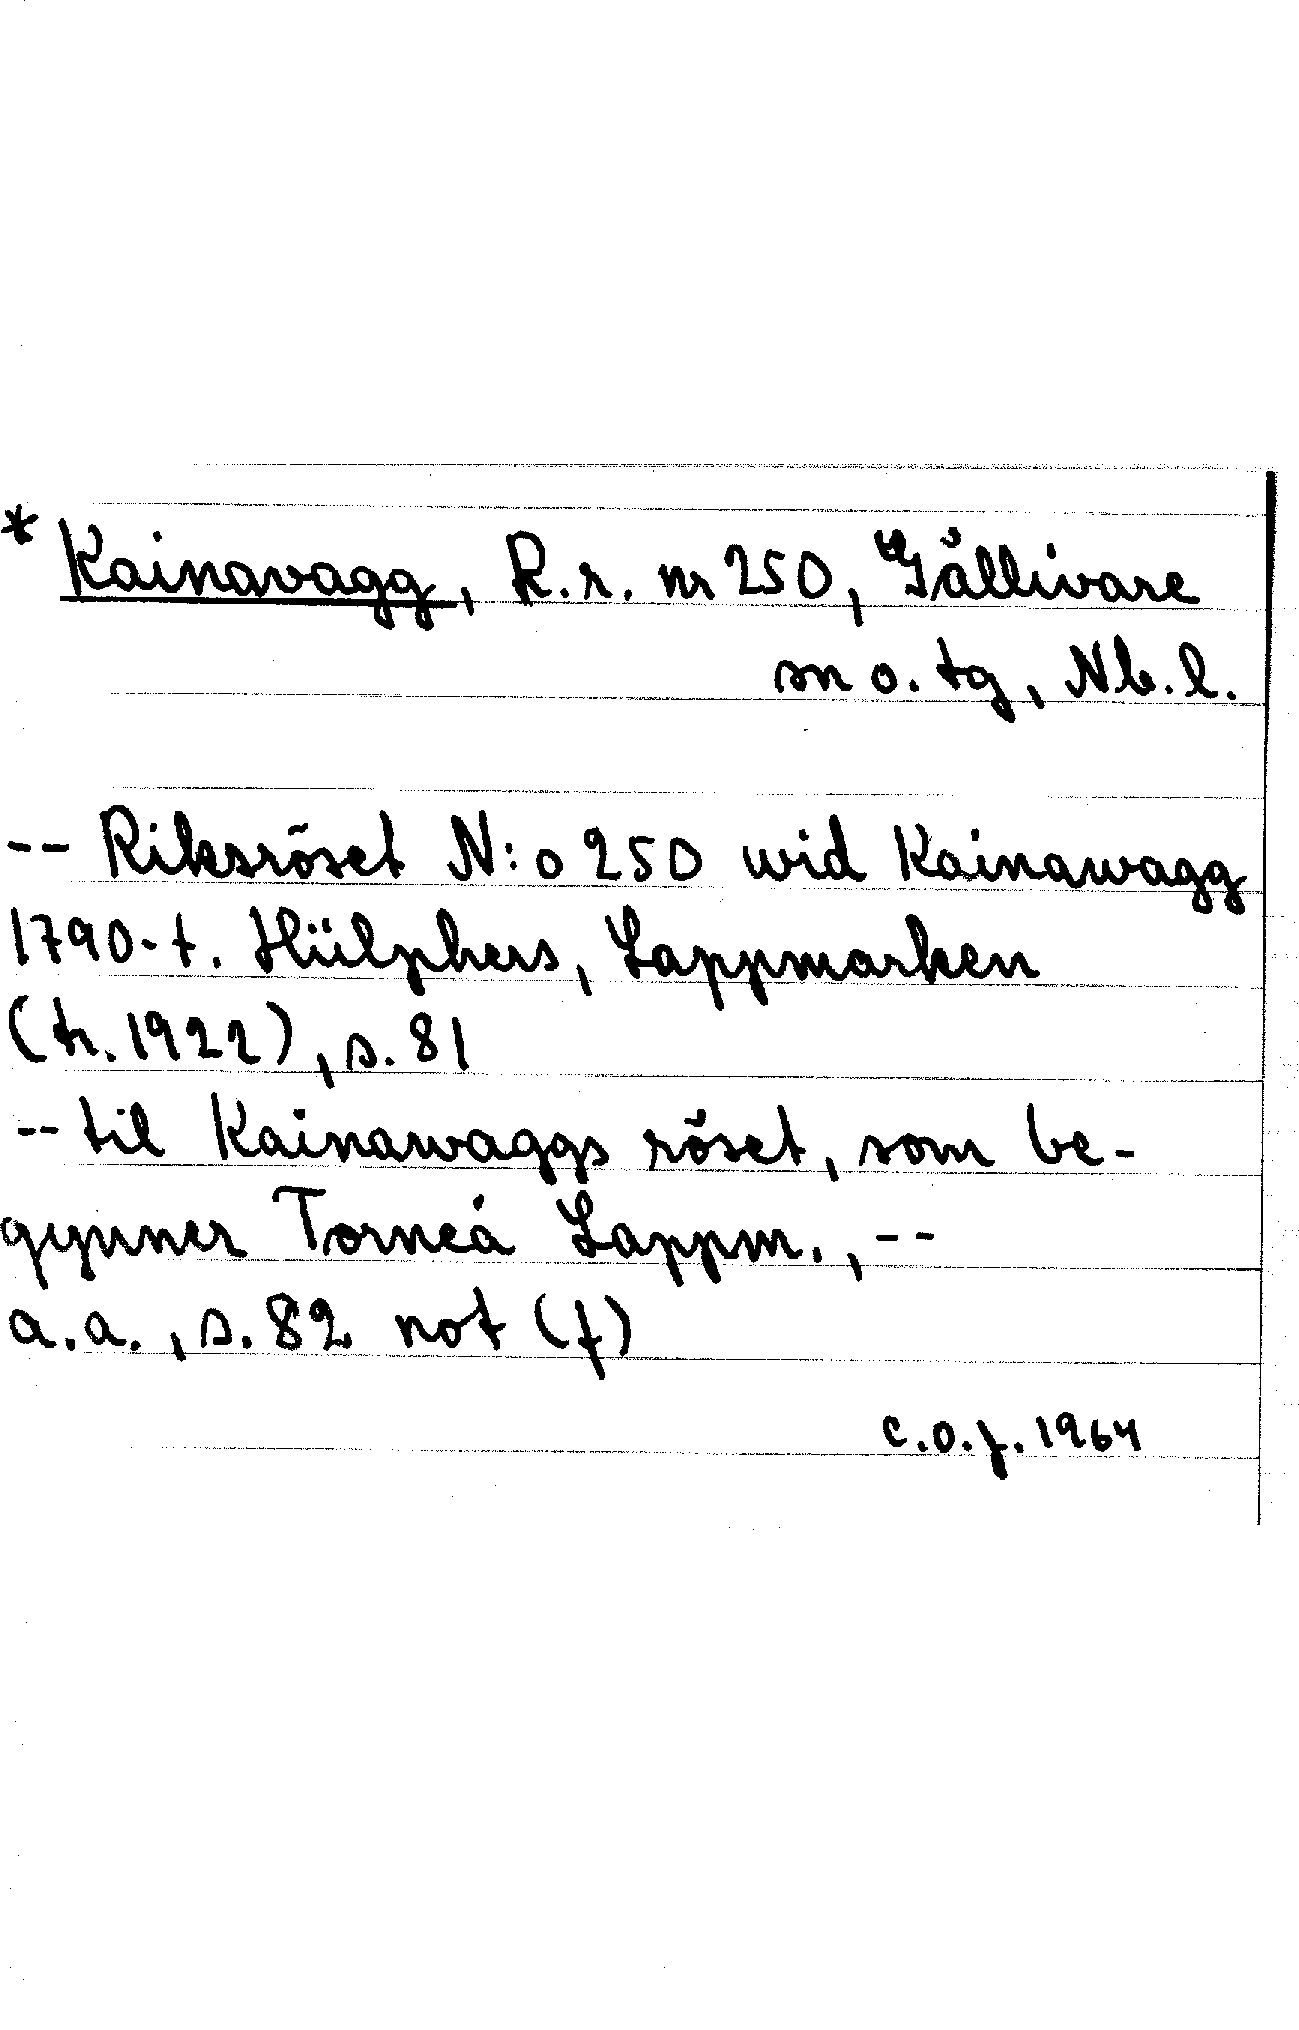 * Kainavagg, R.r. nr 250, Gällivare
sn o. tg, Nb.l.
-- Riksröset N:o 250 wid Kainawagg
1790-t. Hülphers, Lappmarken
(tr. 1922), s. 81
-- til Kainawaggs röset, som be-
gynner Torneå Lappm., --
a.a., s. 82 not (f)
C.O.J. 1964